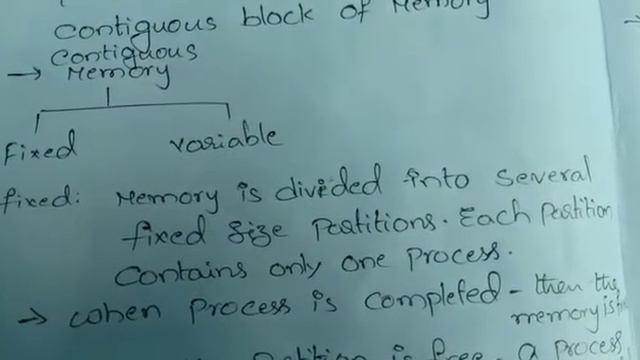 contiguous block of Memory
Contiguous
→ Memory
Fixed variable
fixed: Memory is divided into several
fixed size partitions. Each partition
contains only one process.
→ when process is completed - then the
memory is
partition is free a process